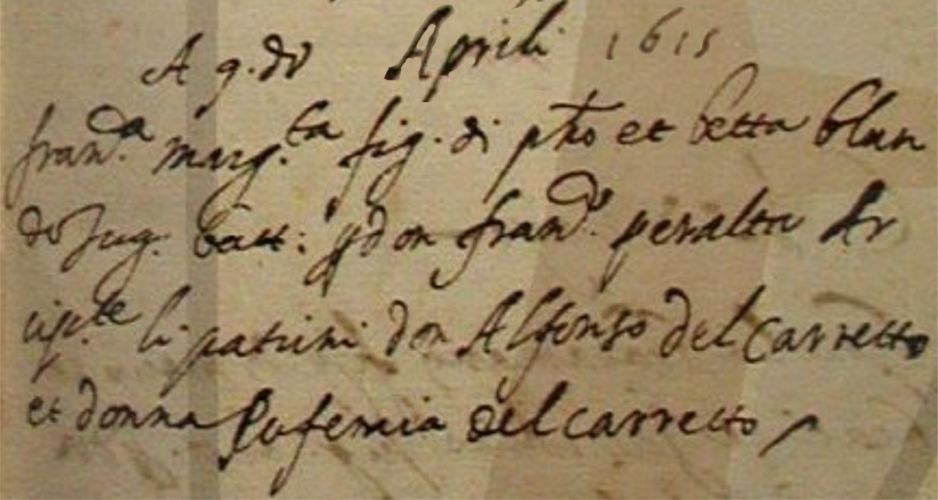 A 9. do Aprili 1615
fran.ca marg.ta fig. di pho et betta blan
do Jug. batt: p don fran.co peralta Ar
cip.te li patrini don Alfonso del Carretto
et donna Eufemia del carretto